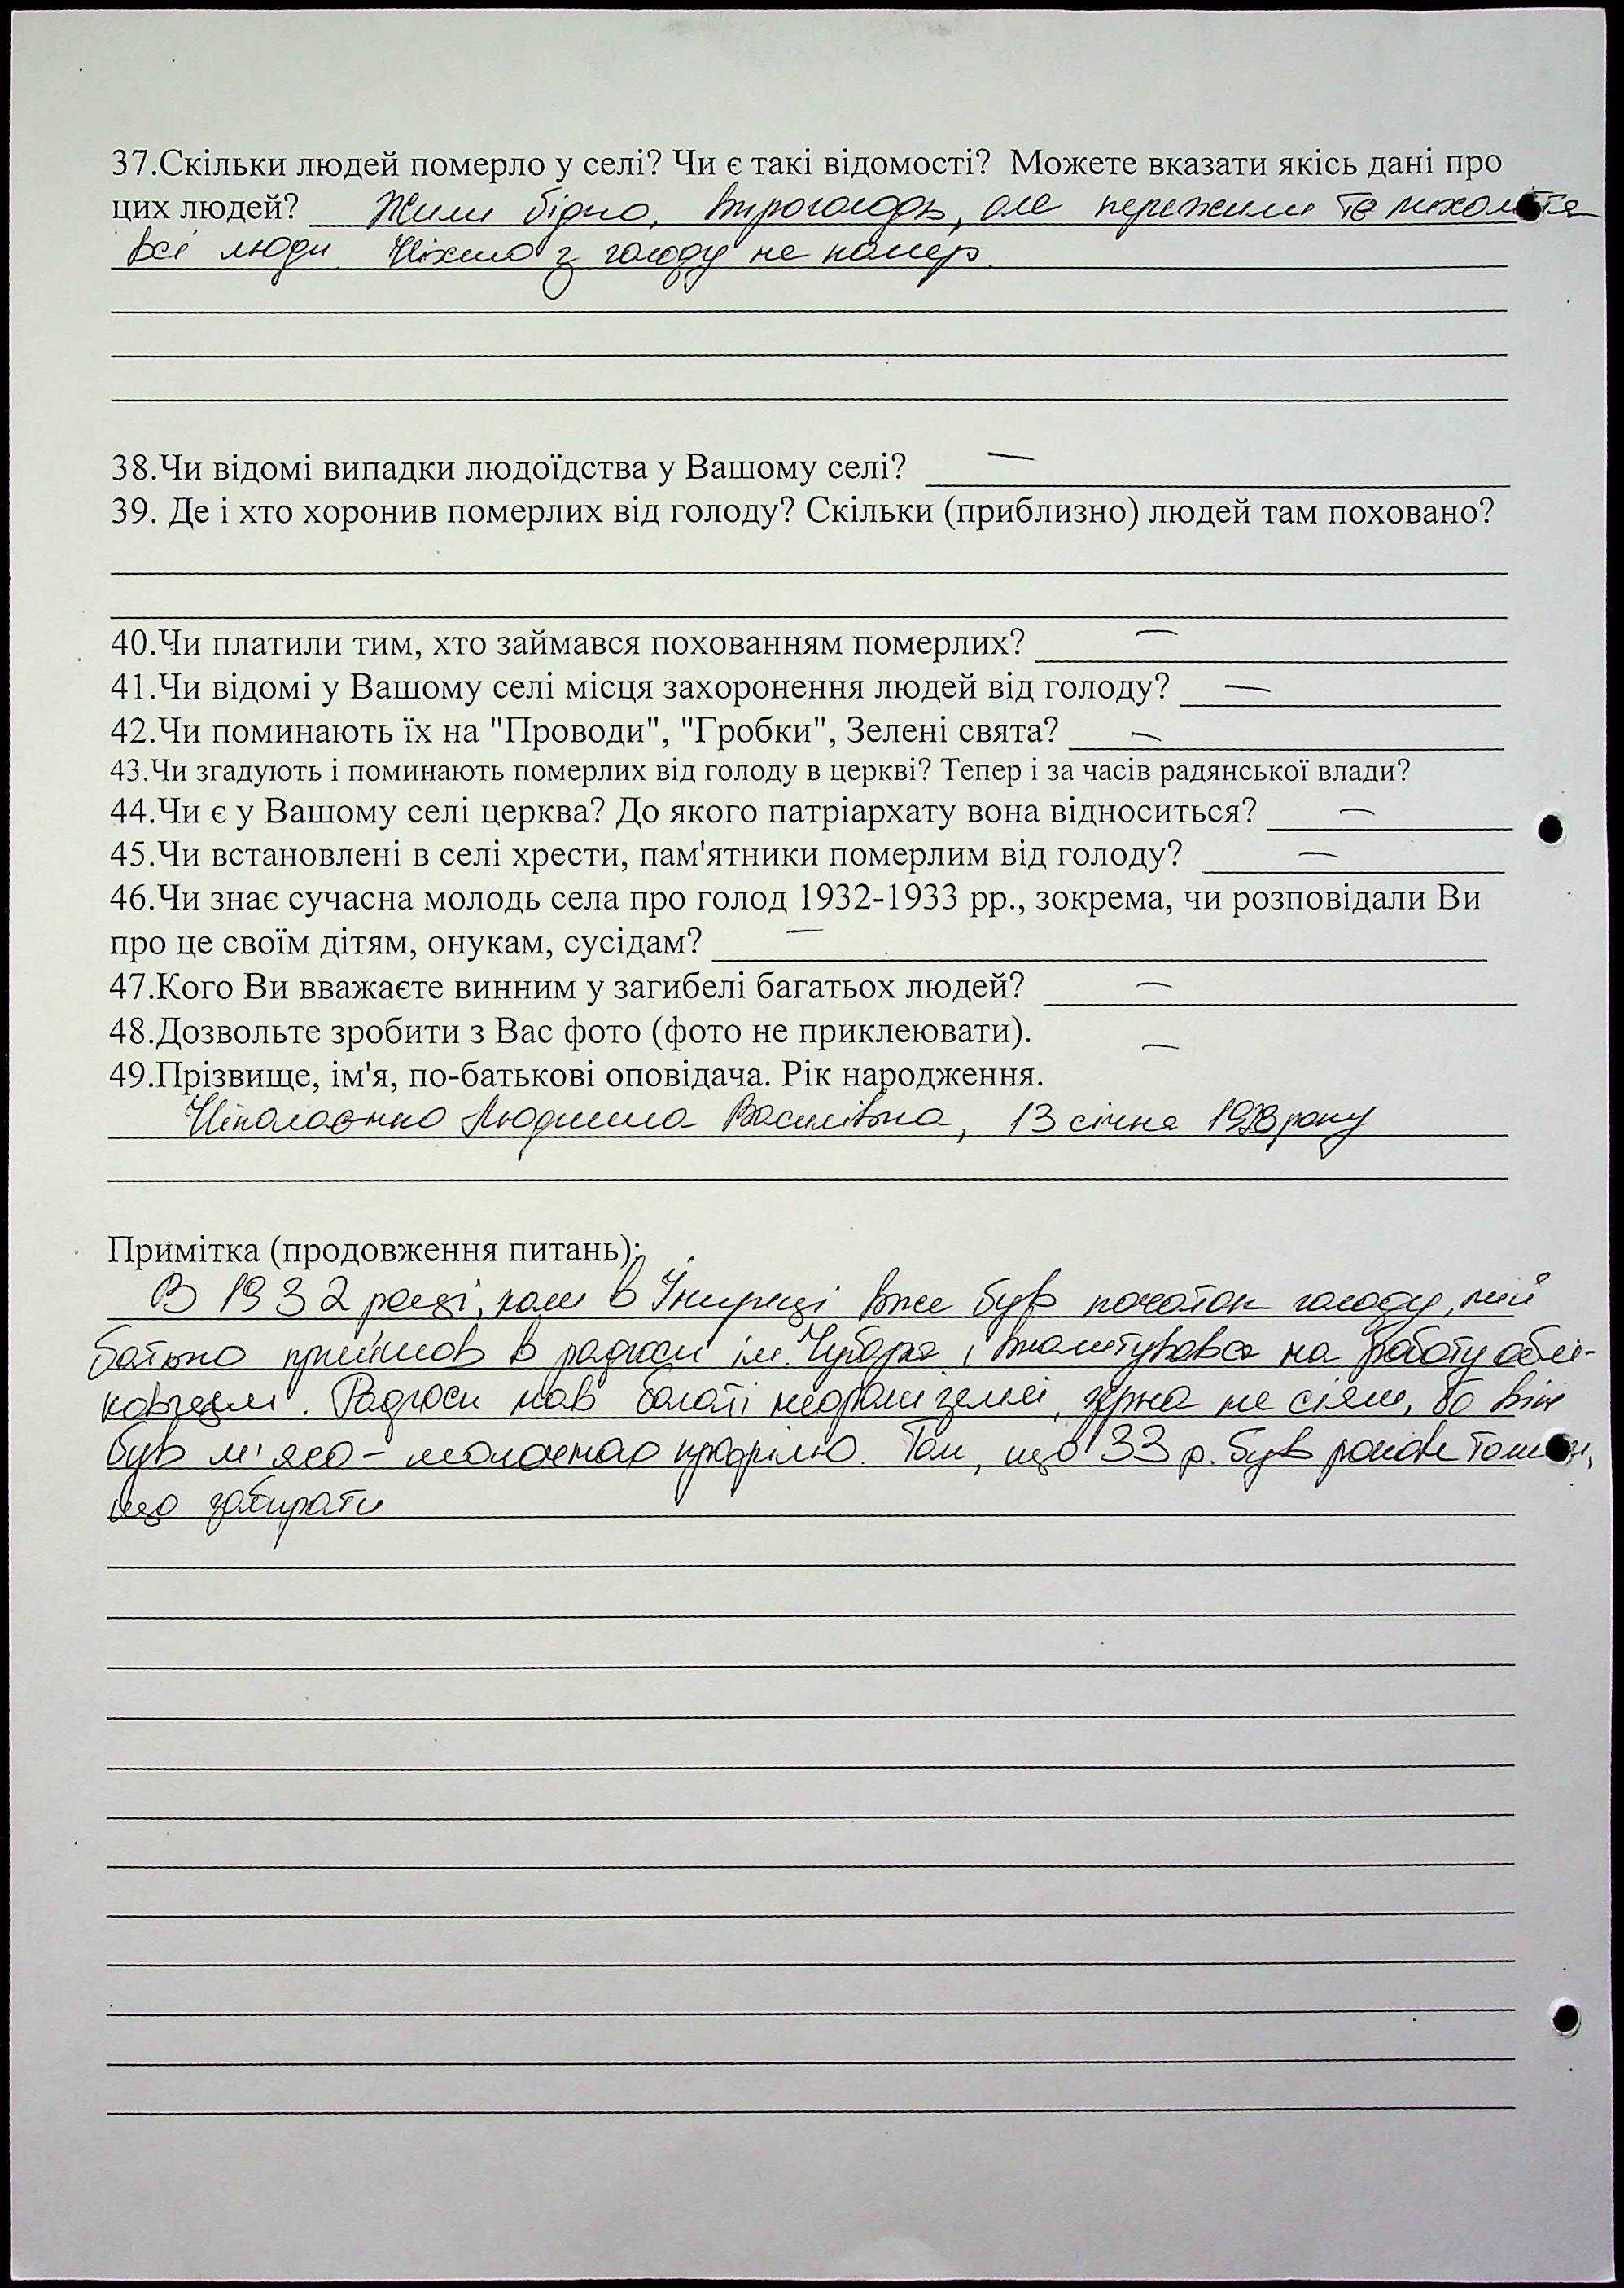 37.Скільки людей померло у селі? Чи є такі відомості? Можете вказати якісь дані про
цих людей? Жили бідно, впроголодь, але пережили те
всі люди. Ніхто з голоду не помер.
38.Чи відомі випадки людоїдства у Вашому селі? —
39. Де і хто хоронив померлих від голоду? Скільки (приблизно) людей там поховано?
40.Чи платили тим, хто займався похованням померлих? —
41.Чи відомі у Вашому селі місця захоронення людей від голоду? —
42.Чи поминають їх на "Проводи", "Гробки", Зелені свята? —
43.Чи згадують і поминають померлих від голоду в церкві? Тепер і за часів радянської влади?
44.Чи є у Вашому селі церква? До якого патріархату вона відноситься? —
45.Чи встановлені в селі хрести, пам'ятники померлим від голоду? —
46.Чи знає сучасна молодь села про голод 1932-1933 рр., зокрема, чи розповідали Ви
про це своїм дітям, онукам, сусідам? —
47.Кого Ви вважаєте винним у загибелі багатьох людей? —
48.Дозвольте зробити з Вас фото (фото не приклеювати). —
49.Прізвище, ім'я, по-батькові оповідача. Рік народження.
Ніколаєнко Людмила Василівна, 13 січня року
Примітка (продовження питань):
В 1932 році, коли в Інгульці вже був початок голоду, мій
батько прийшов в радгосп ім. Чубаря і влаштувався на роботу облі-
ковцем. Радгосп мав багаті неорані землі, зерна не сіяли, бо він
був м'ясо-молочного профілю. Там, що 33 р. був
що забирати